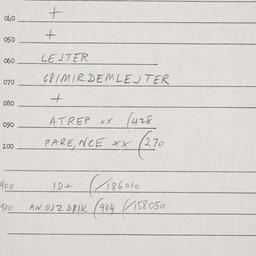 040 +
050 +
060 LESTER
070 GPIMIRDEMLESTER
080 +
090 ATREP xx (428
100 PARE,NCE xx (270
900 ID+ (/186010
910 (904 (/158050